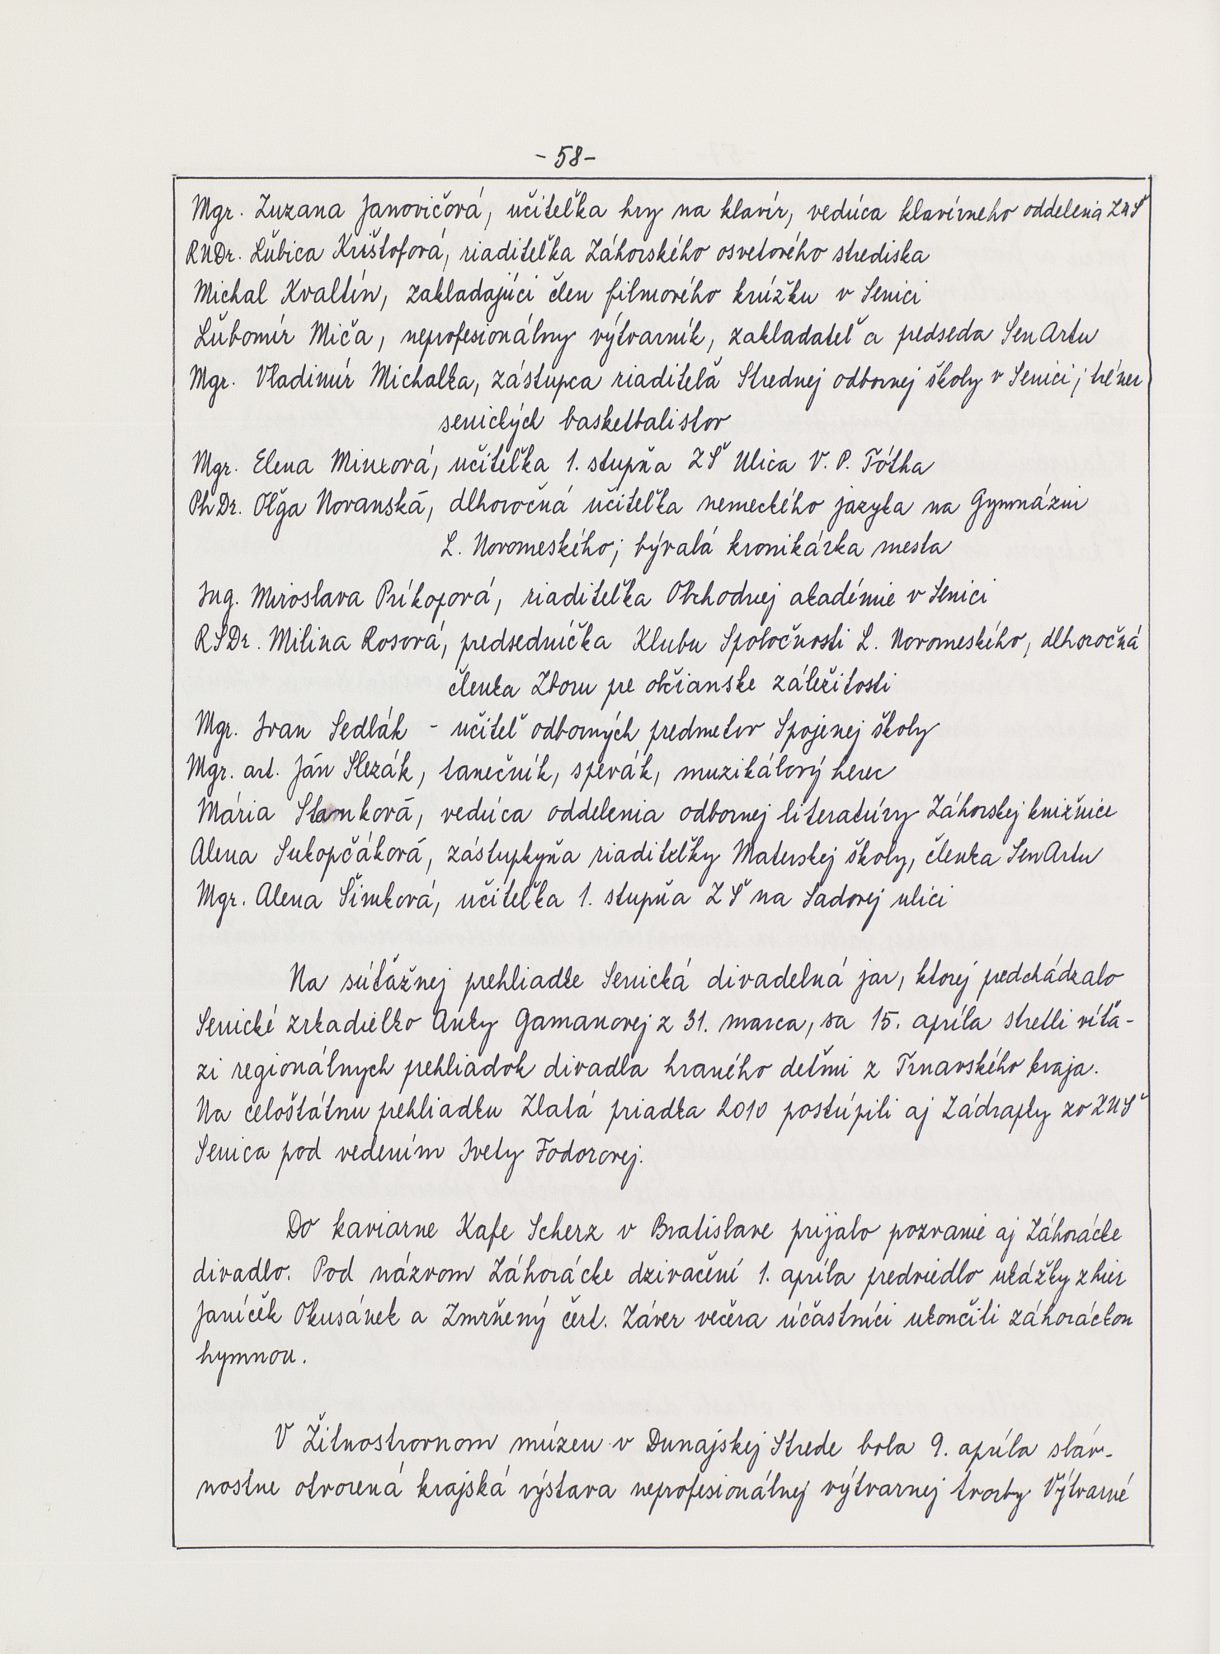 - 58 -
Mgr. Zuzana Janovičová, učiteľka hry na klavír, vedúca klavírneho oddelenia ZUŠ
RNDr. Ľubica Krištofová, riaditeľka Záhorského osvetového strediska
Michal Kvaltín, zakladajúci člen filmového krúžku v Senici
Ľubomír Miča, neprofesionálny výtvarník, zakladateľ a predseda SenArtu
Mgr. Vladimír Michalka, zástupca riaditeľa Strednej odbornej školy v Senici, tréner
senických basketbalistov
Mgr. Elena Minxová, učiteľka 1. stupňa ZŠ Ulica V. P. Tótha
PhDr. Oľga Novanská, dlhoročná učiteľka nemeckého jazyka na Gymnáziu
L. Novomeského; bývalá kronikárka mesta
Ing. Miroslava Príkopová, riaditeľka Obchodnej akadémie v Senici
RSDr. Milina Rosová, predsedníčka Klubu Spoločnosti L. Novomeského, dlhoročná
členka Zboru pre občianske záležitosti
Mgr. Ivan Sedlák - učiteľ odborných predmetov Spojenej školy
Mgr. art. Ján Slezák, tanečník, spevák, muzikálový herec
Mária Stamková, vedúca oddelenia odbornej literatúry Záhorskej knižnice
Alena Sukopčáková, zástupkyňa riaditeľky Materskej školy, členka SenArtu
Mgr. Alena Šimková, učiteľka 1. stupňa ZŠ na Sadovej ulici
Na súťažnej prehliadke Senická divadelná jar, ktorej predchádzalo
Senické zrkadielko Anky Gamanovej z 31. marca, sa 15. apríla stretli víťa-
zi regionálnych prehliadok divadla hraného deťmi z Trnavského kraja.
Na celoštátnu prehliadku Zlatá priadka 2010 postúpili aj Zádrapky zo ZUŠ
Senica pod vedením Ivety Fodorovej.
Do kaviarne Kafe Scherz v Bratislave prijalo pozvanie aj Záhorácke
divadlo. Pod názvom Záhorácke dzivačení 1. apríla predviedlo ukážky z hier
Janíček Okusánek a Zmrňený čert. Záver večera účastníci ukončili záhoráckou
hymnou.
V Žitnostrovnom múzeu v Dunajskej Strede bola 9. apríla sláv-
nostne otvorená krajská výstava neprofesionálnej výtvarnej tvorby Výtvarné